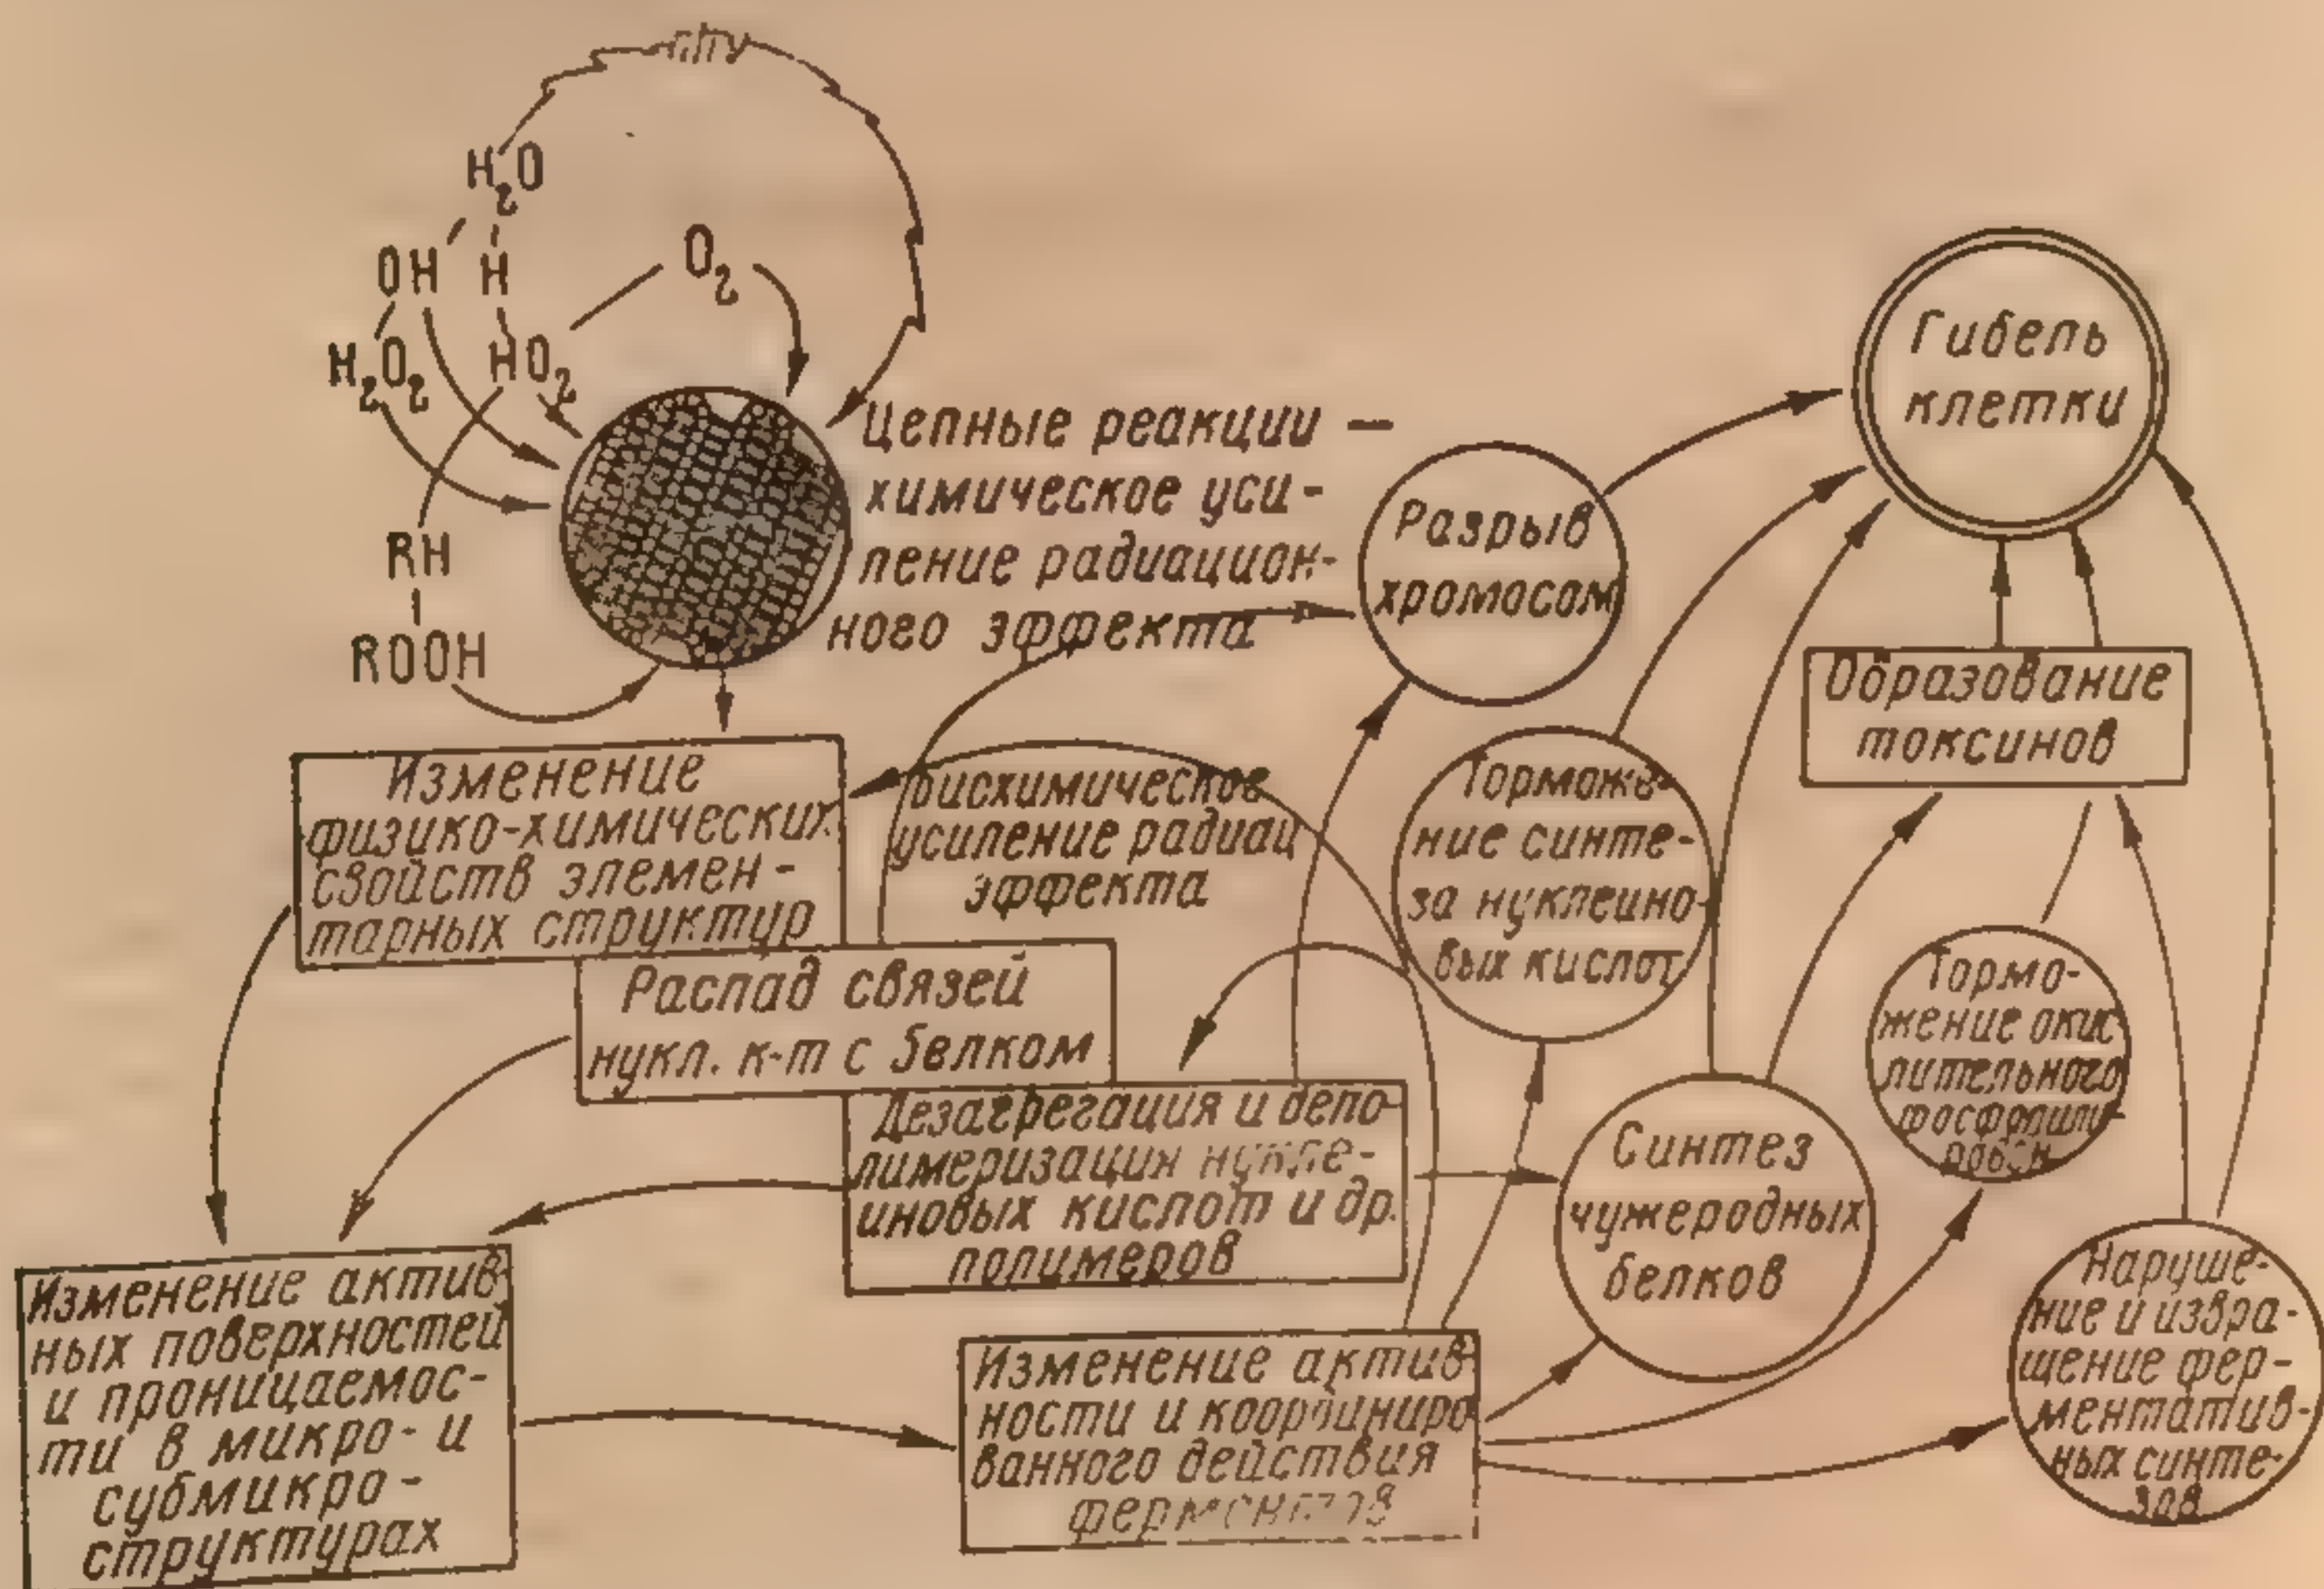 nhν
H₂O
OH H
O₂
H₂O₂ HO₂
RH
ROOH
Цепные реакции —
химическое уси-
ление радиацион-
ного эффекта
Разрыв
хромосом
Гибель
клетки
Образование
токсинов
Изменение
физико-химических
свойств элемен-
тарных структур
усиление радиац
эффекта
Торможе-
ние синте-
за нуклеино-
вых кислот
Распад связей
нукл. к-т с белком
Дезагрегация и депо-
лимеризация нукле-
иновых кислот и др.
полимеров
Синтез
чужеродных
белков
Тормо-
жение окис
лительного
Наруше-
ние и извра-
щение фер-
ментатив-
ных синте-
зов
Изменение актив-
ных поверхностей
и проницаемос-
ти в микро- и
субмикро-
структурах
Изменение актив-
ности и координиро
ванного действия
ферментов